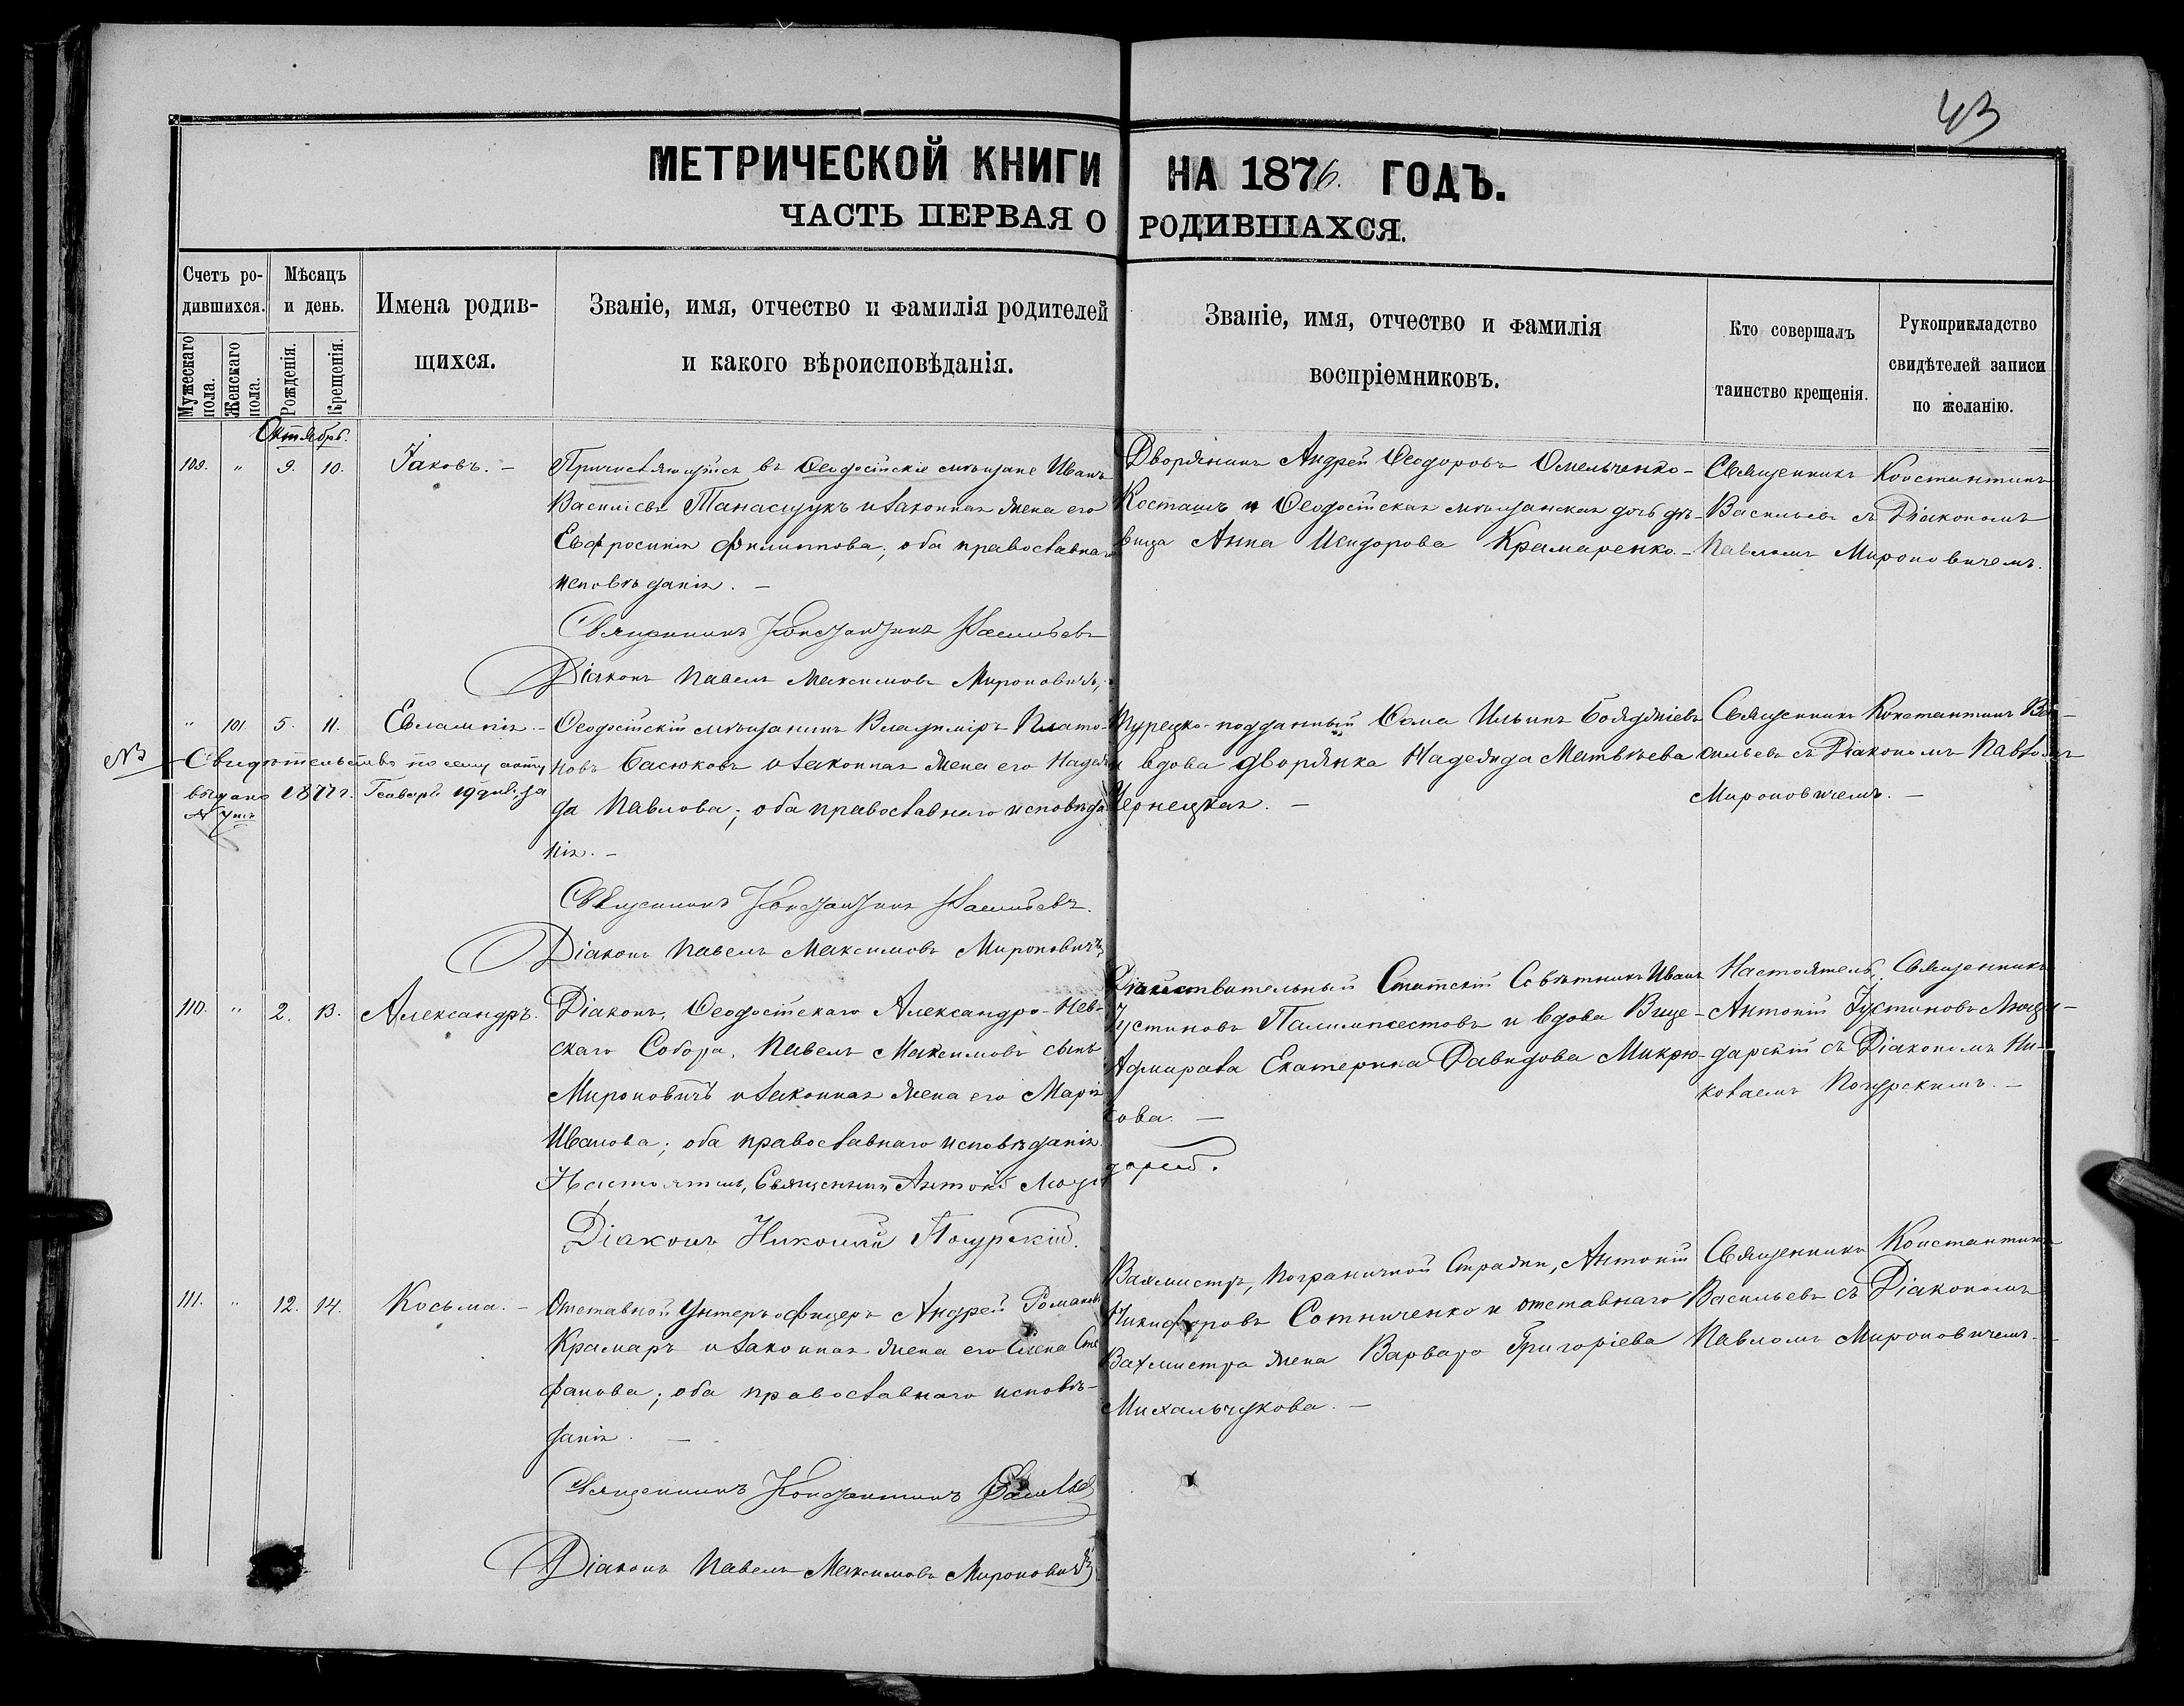 43
МЕТРИЧЕСКОЙ КНИГИ НА 1876. ГОДЪ.
ЧАСТЬ ПЕРВАЯ О РОДИВШАХСЯ.
Счетъ ро-
дившихся.
Мужескаго пола.
Женскаго пола.
Мѣсяцъ
и день.
Рожденія.
Крещенія.
Имена родив-
щихся.
Званіе, имя, отчество и фамилія родителей
и какого вѣроисповѣданія.
Званіе, имя, отчество и фамилія
воспріемниковъ.
Кто совершалъ
таинство крещенія.
Рукоприкладство
свидѣтелей записи
по желанію.
Октябрь.
109. " 9. 10. Іаковъ. –
Причисляющійся въ Ѳеодосійскіе мѣщане Иванъ
Василіевъ Танасщукъ и законная жена его
Евфросинія Филиппова; оба православнаго
исповѣданія. –
Священникъ Константинъ Васильевъ
Діаконъ Павелъ Максимовъ Мироновичъ,
Дворянинъ Андрей Ѳеодоровъ Омельченко-
Косташъ и Ѳеодосійская мѣщанская дочь дѣ-
вица Анна Исидорова Крамаренко. –
Священникъ Константинъ
Васильевъ съ Діакономъ
Павломъ Мироновичемъ.
" 101 5. 11. Евлампія. –
NB Свидѣтельство по сему акту
выдано 1877 г. Генваря 19 дня за
№
Ѳеодосійскій мѣщанинъ Владиміръ Плато-
новъ Басюковъ и законная жена его Надеж-
да Павлова; оба православнаго исповѣда-
нія. –
Священникъ Константинъ Васильевъ.
Діаконъ Павелъ Максимовъ Мироновичъ,
Турецко-подданный Ѳома Ильинъ Бояджіевъ
и вдова дворянка Надежда Матвѣева
Чернецкая. –
Священникъ Константинъ Ва-
сильевъ съ Діакономъ Павломъ
Мироновичемъ. –
110. " 2. 13. Александръ.
Діаконъ, Ѳеодосійскаго Александро-Нев-
скаго Собора, Павелъ Максимовъ сынъ
Мироновичъ и законная жена его Марія
Иванова; оба православнаго исповѣданія.
Настоятель, Священникъ Антоній Лющи
дарскій.
Діаконъ Николай Погурскій.
Дѣйствительный Статскій Совѣтникъ Иванъ
Іустиновъ Палимпсестовъ и вдова Вице-
Адмирала Екатерина Давидова Микрю-
кова. –
Настоятель, Священникъ
Антоній Іустиновъ Лющи-
дарскій съ Діакономъ Ни-
колаемъ Погурскимъ. –
111. " 12. 14. Косьма. –
Отставной Унтеръ-офицеръ Андрей Романовъ
Крамаръ и законная жена его Елена Сте
фанова; оба православнаго исповѣ-
данія. –
Священникъ Константинъ Васильевъ
Діаконъ Павелъ Максимовъ Мироновичъ
Вахмистръ, Пограничной Стражи, Антоній
Никифоровъ Сотниченко и отставнаго
Вахмистра жена Варвара Григоріева
Михальчукова. –
Священникъ Константинъ
Васильевъ съ Діакономъ
Павломъ Мироновичемъ. –